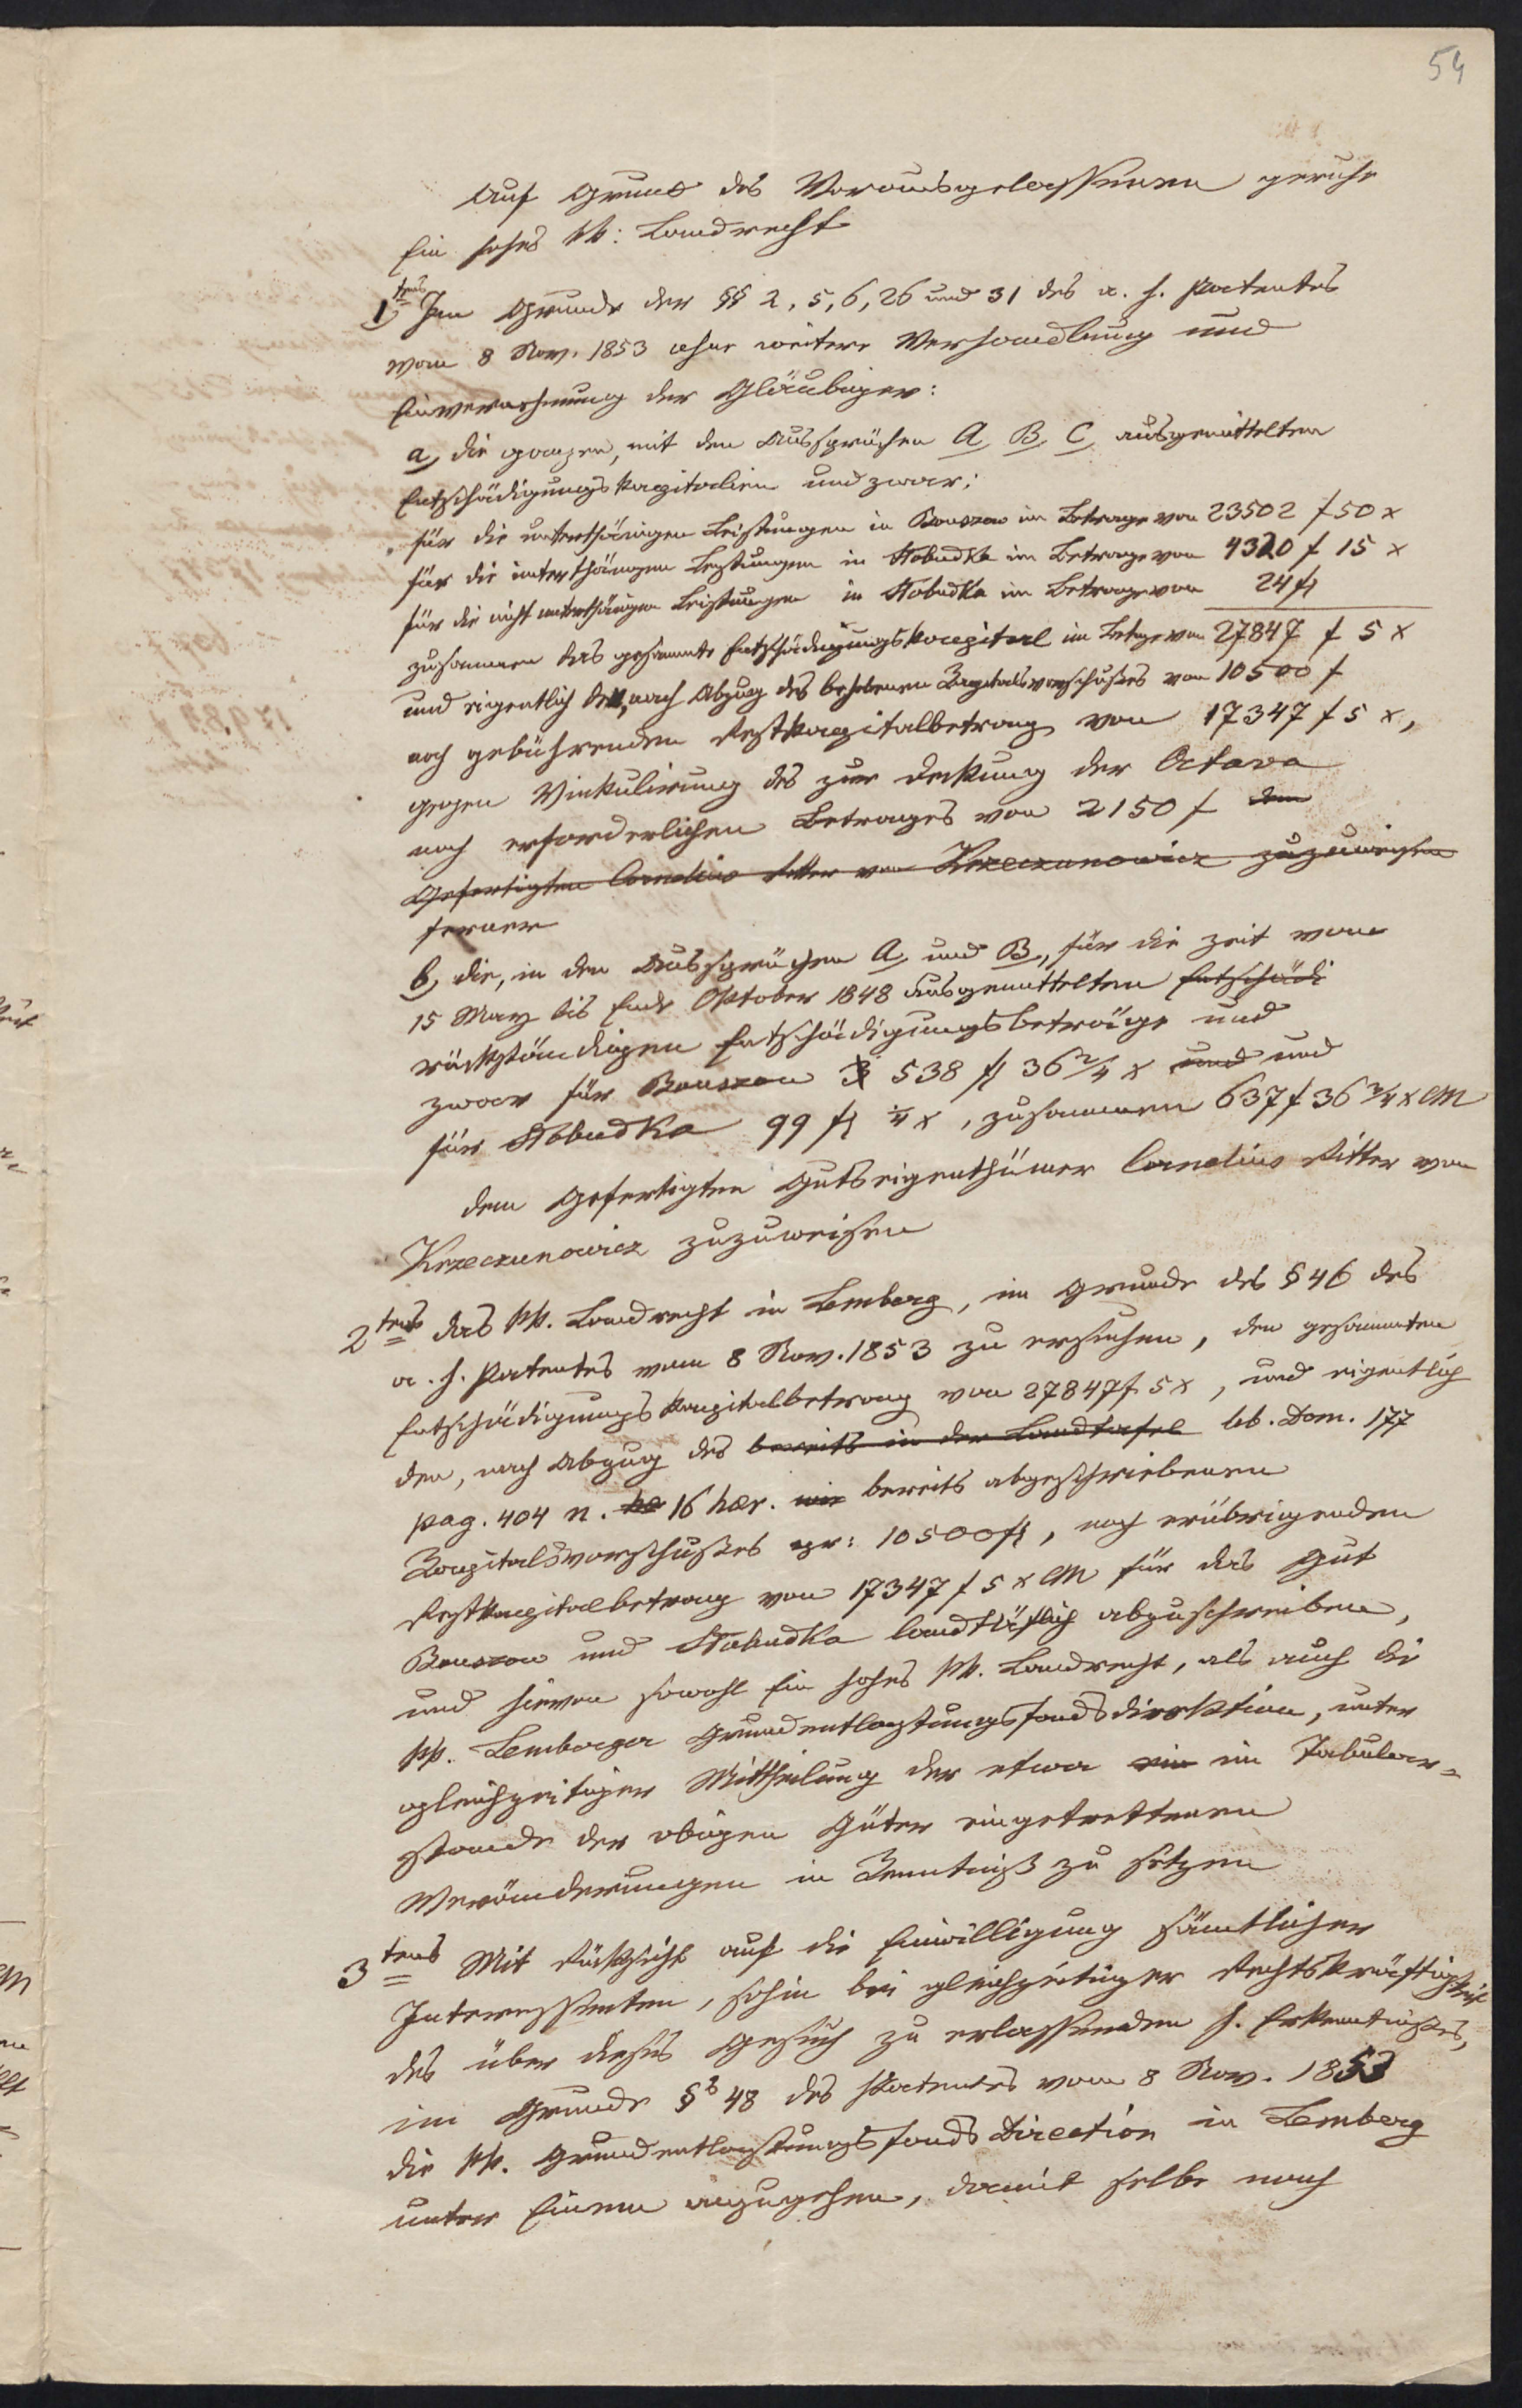 54
Auf Grund des Vorausgelassenen geruhe
Ein hohes kk: Landrecht
1tens Im Grunde der §§ 2, 5, 6, 26 und 31 des a. h. Patentes
vom 8 Nov. 1853 ohne weitere Verhandlung und
Einvernehmung der Gläubiger:
a, die ganzen, mit den Aussprüchen A, B, C, ausgemittelten
Entschädigungskapitalien und zwar:
für die unterthänigen Leistungen in Bouszow im Betrage von 23502 f 50 x
für die unterthänigen Leistungen in Słobudka im Betrage von 4320 f 15 x
für die nicht unterthänigen Leistungen in Słobudka im Betrage von 24 fl
zusammen das gesammte Entschädigungskapital im Betrage von 27847 f 5 x
und eigentlich den, nach Abzug des behobenen Kapitalsvorschußes von 10500 f
noch gebührenden Restkapitalbetrag von 17347 f 5 x,
gegen Vinkulirung des zur Deckung der Octava
noch erforderlichen Betrages von 2150 f dem
Gefertigten Cornelius Ritter von Krzeczunowicz zuzuweisen
ferner
b, die, in den Aussprüchen A, und B, für die Zeit vom
15 May bis Ende Oktober 1848 ausgemittelten Entschädi
rückständigen Entschädigungsbeträge und
zwar für Bouszow 538 fl 36 2/4 x und und
für Słobudka 99 fl 1/4 x, zusammen 637 f 36 3/4 x CM
dem Gefertigten Gutseigenthümer Cornelius Ritter von
Krzeczunowicz zuzuweisen
2tens das kk. Landrecht in Lemberg, im Grunde des § 46 des
a. h. Patentes vom 8 Nov. 1853 zu ersuchen, den gesammten
Entschädigungskapitalbetrag von 27847 f 5 x, und eigentlich
den, nach Abzug des bereits in der Landtafel lib. Dom. 177
pag. 404 n. hae 16 haer. wie bereits abgeschriebenen
Kapitalsvorschußes pr: 10500 fl, noch erübrigenden
Restkapitalbetrag von 17347 f 5 x CM für das Gut
Bouszow und Słobudka landtäflich abzuschreiben,
und hievon sowohl Ein hohes kk. Landrecht, als auch die
kk. Lemberger Grundentlastungsfondsdirektion, unter
gleichzeitiger Mittheilung der etwa ein im Tabular-
stande der obigen Güter eingetrettenen
Veränderungen in Kenntniß zu setzen
3tens Mit Rücksicht auf die Einwilligung sämtlicher
Interessenten, sohin bei gleichzeitiger Rechtskräftigkeit
des über dieses Gesuch zu erlassenden h. Erkenntnißes,
im Grunde § 48 des Patentes vom 8 Nov. 1853
die kk. Grundentlastungsfonds Direction in Lemberg
unter Einem anzugehen, damit selbe nach